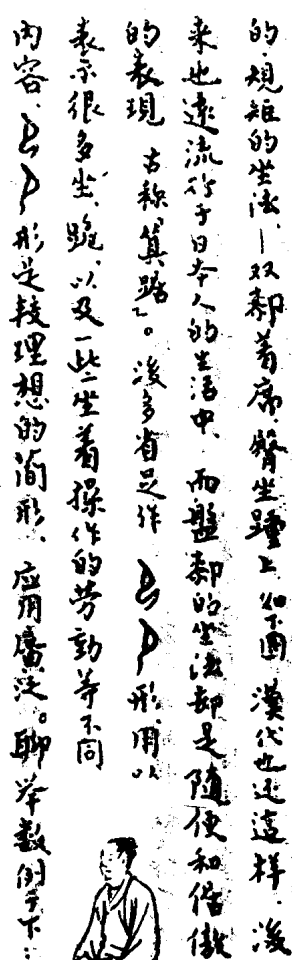 的、規矩的坐法、—双厀着席、臀坐踵上、如下圖 漢代也还這样、後
来也還流行于日本人的生活中、而盤厀的坐法却是隨便和倨傲
的表現 古称“箕踞”。後多省足作 形、用以
表示很多坐、跪、以及一些坐着操作的劳動等不同
内容、 形是较理想的简形、应用廣泛。聊举数例于下：